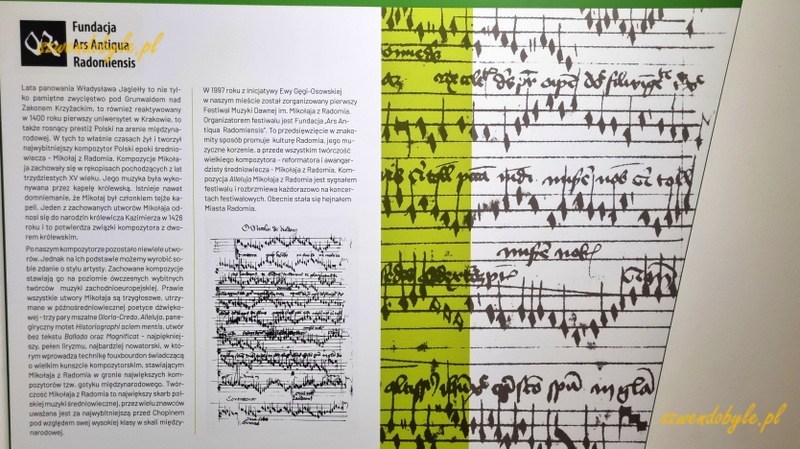 Fundacja
Ars Antiqua
Radomiensis
szwendobyle.pl
Lata panowania Władysława Jagiełły to nie tyl-
ko pamiętne zwycięstwo pod Grunwaldem nad
Zakonem Krzyżackim, to również reaktywowany
w 1400 roku pierwszy uniwersytet w Krakowie, to
także rosnący prestiż Polski na arenie międzyna-
rodowej. W tych to właśnie czasach żył i tworzył
najwybitniejszy kompozytor Polski epoki średnio-
wiecza - Mikołaj z Radomia. Kompozycje Mikoła-
ja zachowały się w rękopisach pochodzących z lat
trzydziestych XV wieku. Jego muzyka była wyko-
nywana przez kapelę królewską. Istnieje nawet
domniemanie, że Mikołaj był członkiem tejże ka-
peli. Jeden z zachowanych utworów Mikołaja od-
nosi się do narodzin królewicza Kazimierza w 1426
roku i to potwierdza związki kompozytora z dwo-
rem królewskim.
Po naszym kompozytorze pozostało niewiele utwo-
rów. Jednak na ich podstawie możemy wyrobić so-
bie zdanie o stylu artysty. Zachowane kompozycje
stawiają go na poziomie ówczesnych wybitnych
twórców muzyki zachodnioeuropejskiej. Prawie
wszystkie utwory Mikołaja są trzygłosowe, utrzy-
mane w późnośredniowiecznej poetyce dźwięko-
wej - trzy pary mszalne Gloria-Credo, Alleluja, pane-
giryczny motet Historiographi aciem mentis, utwór
bez tekstu Ballada oraz Magnificat - najpiękniej-
szy, pełen liryzmu, najbardziej nowatorski, w któ-
rym wprowadza technikę fouxbourdon świadczącą
o wielkim kunszcie kompozytorskim, stawiającym
Mikołaja z Radomia w gronie największych kom-
pozytorów tzw. gotyku międzynarodowego. Twór-
czość Mikołaja z Radomia to największy skarb pol-
skiej muzyki średniowiecznej, przez wielu znawców
uważana jest za najwybitniejszą przed Chopinem
pod względem swej wysokiej klasy w skali między-
narodowej.
W 1997 roku z inicjatywy Ewy Gęgi-Osowskiej
w naszym mieście został zorganizowany pierwszy
Festiwal Muzyki Dawnej im. Mikołaja z Radomia.
Organizatorem festiwalu jest Fundacja „Ars An-
tiqua Radomiensis". To przedsięwzięcie w znako-
mity sposób promuje kulturę Radomia, jego mu-
zyczne korzenie, a przede wszystkim twórczość
wielkiego kompozytora - reformatora i awangar-
dzisty średniowiecza - Mikołaja z Radomia. Kom-
pozycja Alleluja Mikołaja z Radomia jest sygnałem
festiwalu i rozbrzmiewa każdorazowo na koncer-
tach festiwalowych. Obecnie stała się hejnałem
Miasta Radomia.
szwendobyle.pl